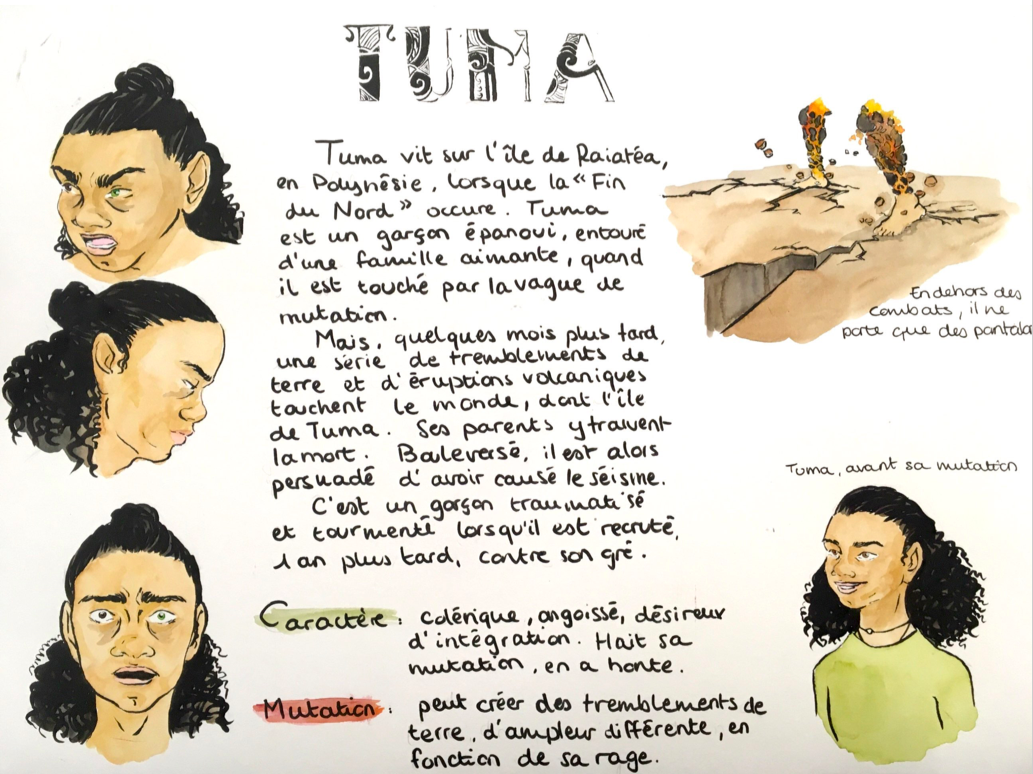 TUMA
Tuma vit sur l'île de Raiatéa,
en Polynésie, lorsque la "Fin
du Nord" occure. Tuma
est un garçon épanoui, entouré
d'une famille aimante, quand
il est touché par la vague de
mutation.
Mais, quelques mois plus tard,
une série de tremblements de
terre et d'éruptions volcaniques
touchent le monde, dont l'île
de Tuma. Ses parents y trouvent
la mort. Bouleversé, il est alors
persuadé d'avoir causé le séisme.
C'est un garçon traumatisé
et tourmenté lorsqu'il est recruté,
1 an plus tard, contre son gré.
Caractère : colérique, angoissé, désireux
d'intégration. Hait sa
mutation, en a honte.
Mutation : peut créer des tremblements de
terre, d'ampleur différente, en
fonction de sa rage.
En dehors des
combats, il ne
porte que des pantalo
Tuma, avant sa mutation